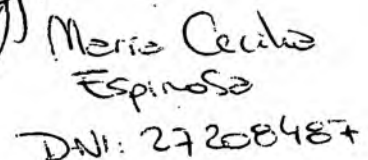 Maria Cecilia
Espinosa
DNI: 27208487